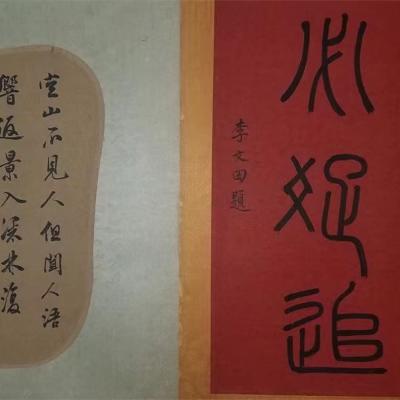 追
李文田題
空山不見人但聞人語
響返景入深林復